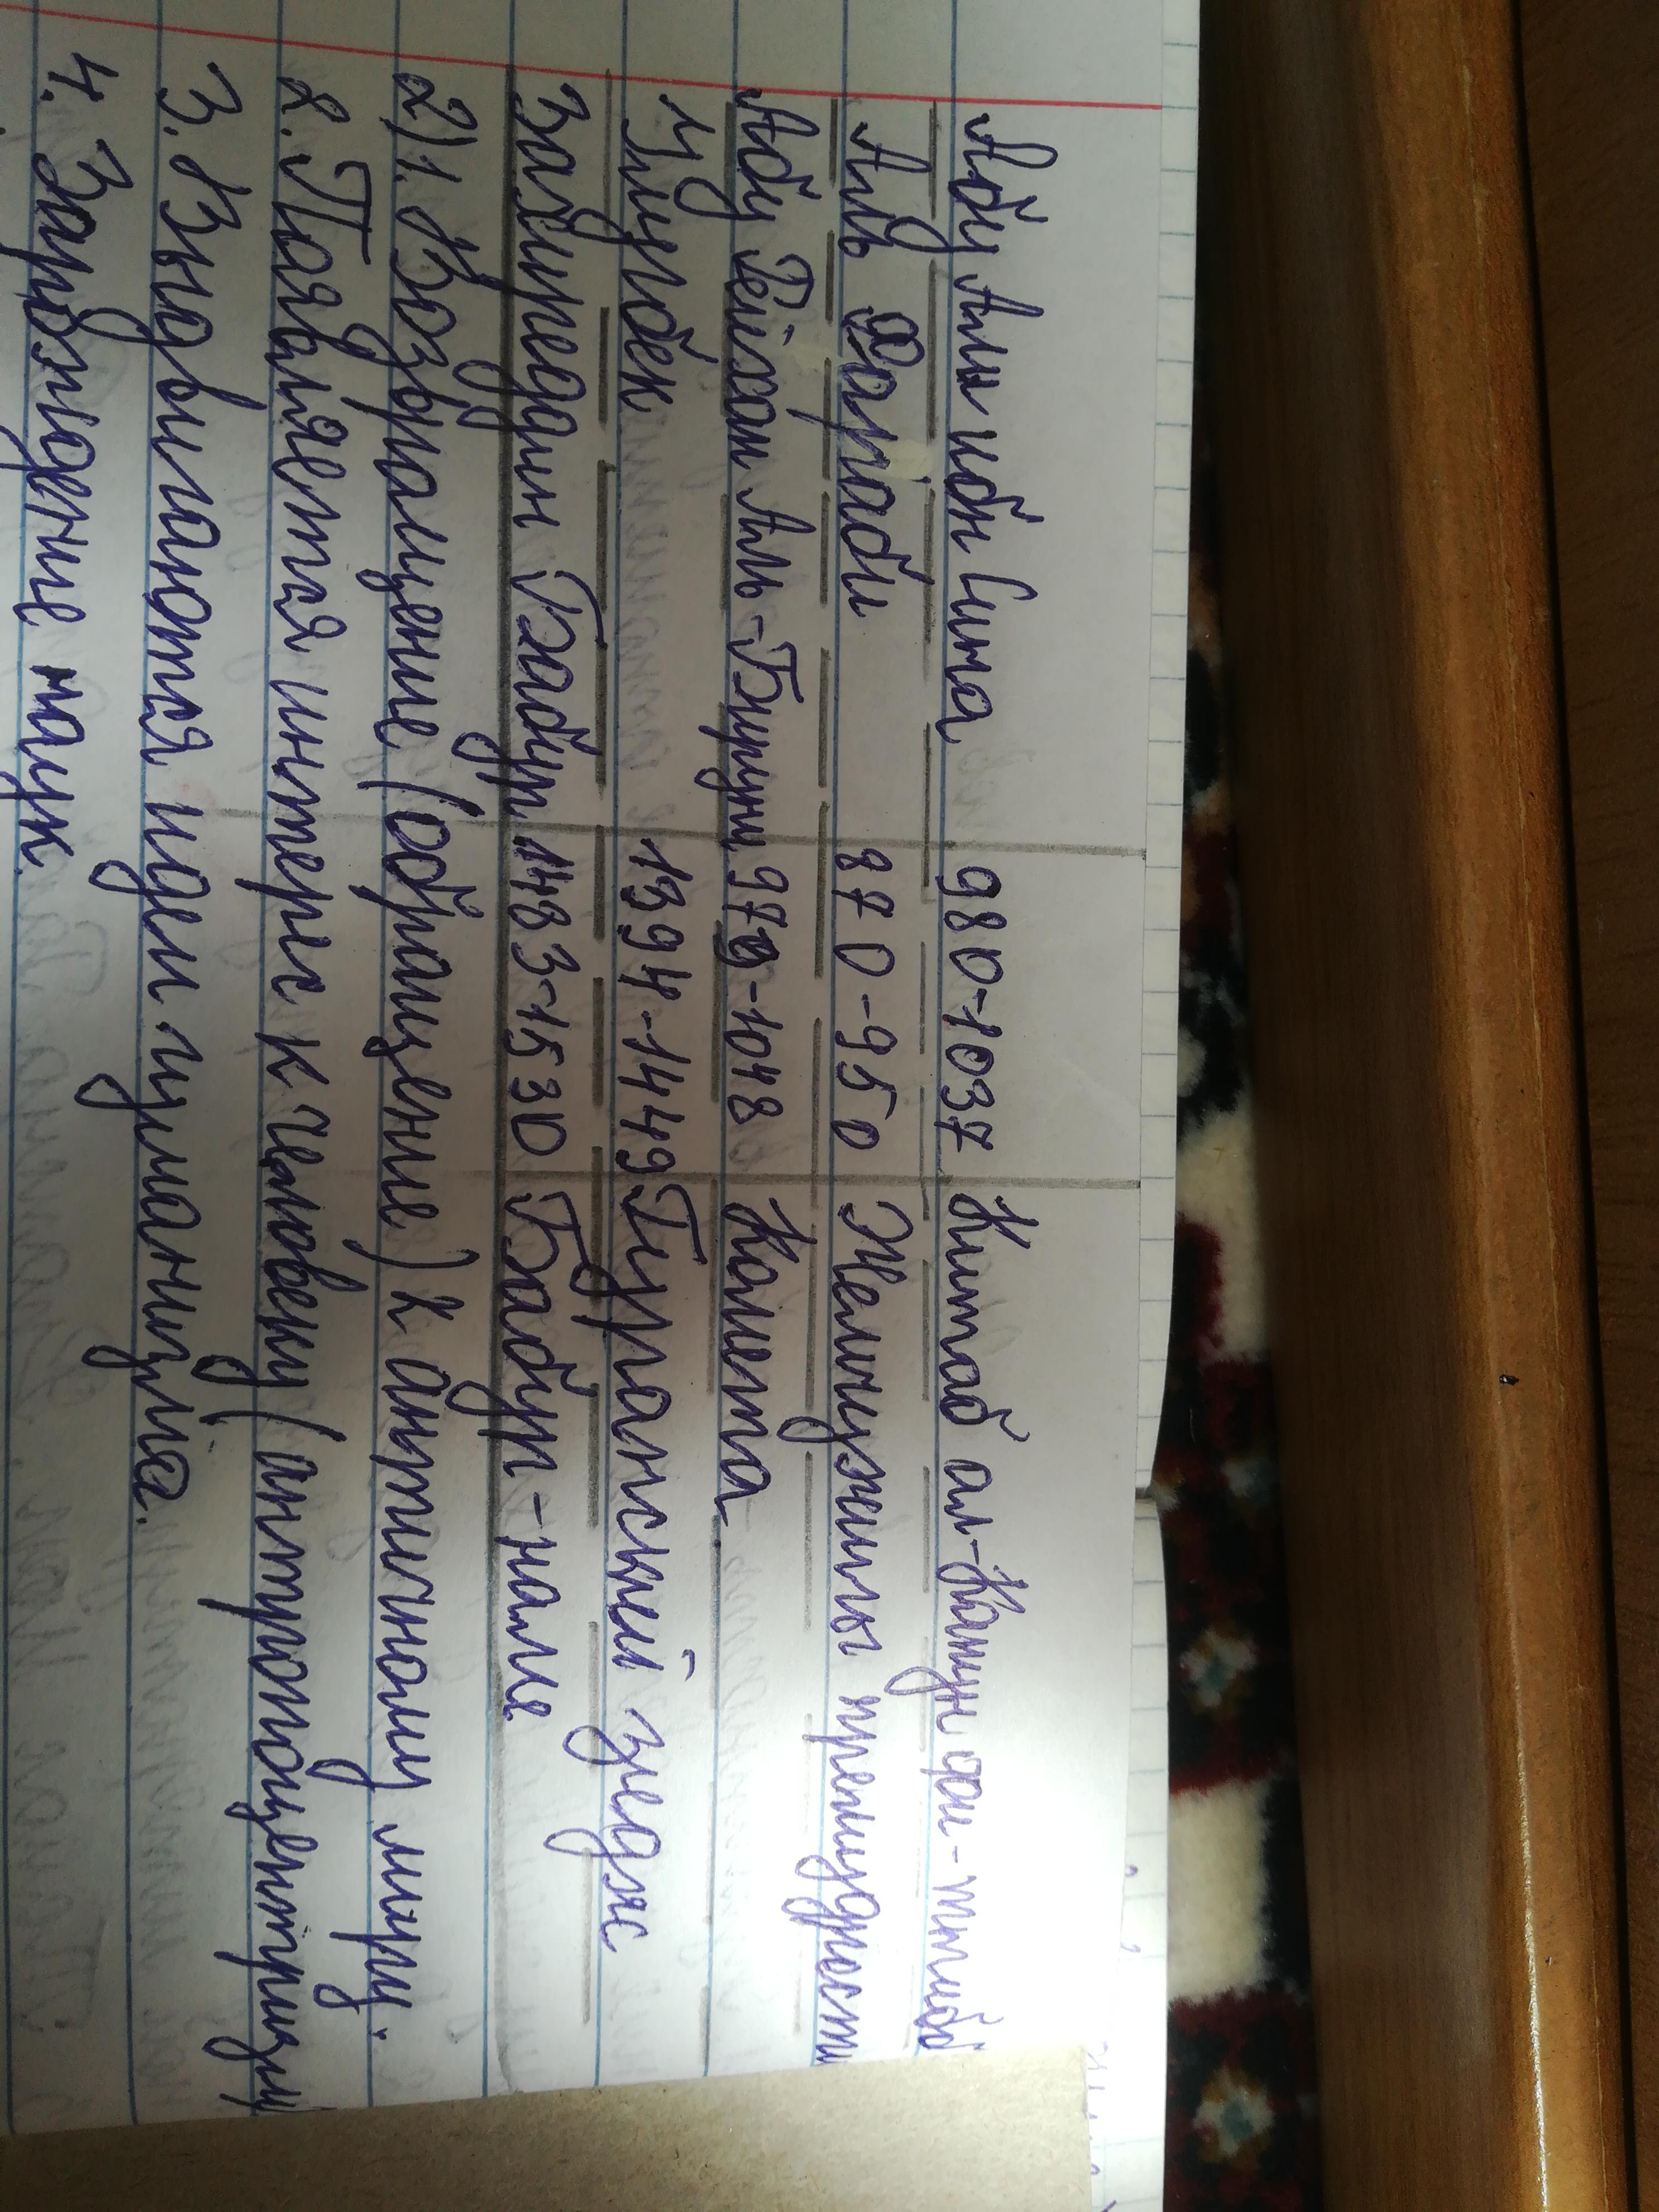 Абу Али ибн Сина 980-1037 Китаб ал-Канун фи-тибб
Аль Фараби 870-950 Жемчужины премудрости
Абу Рейхан Аль-Бируни 979-1048 Комета
Улугбек 1394-1449 Гурганский зредж
Захиреддин Бабур 1483-1530 Бабур-наме
2) 1. Возвращение (обращение) к античному миру.
2. Появляется интерес к человеку (антропоцентризм)
3. Выдвигаются идеи гуманизма.
4. Зарождение наук.